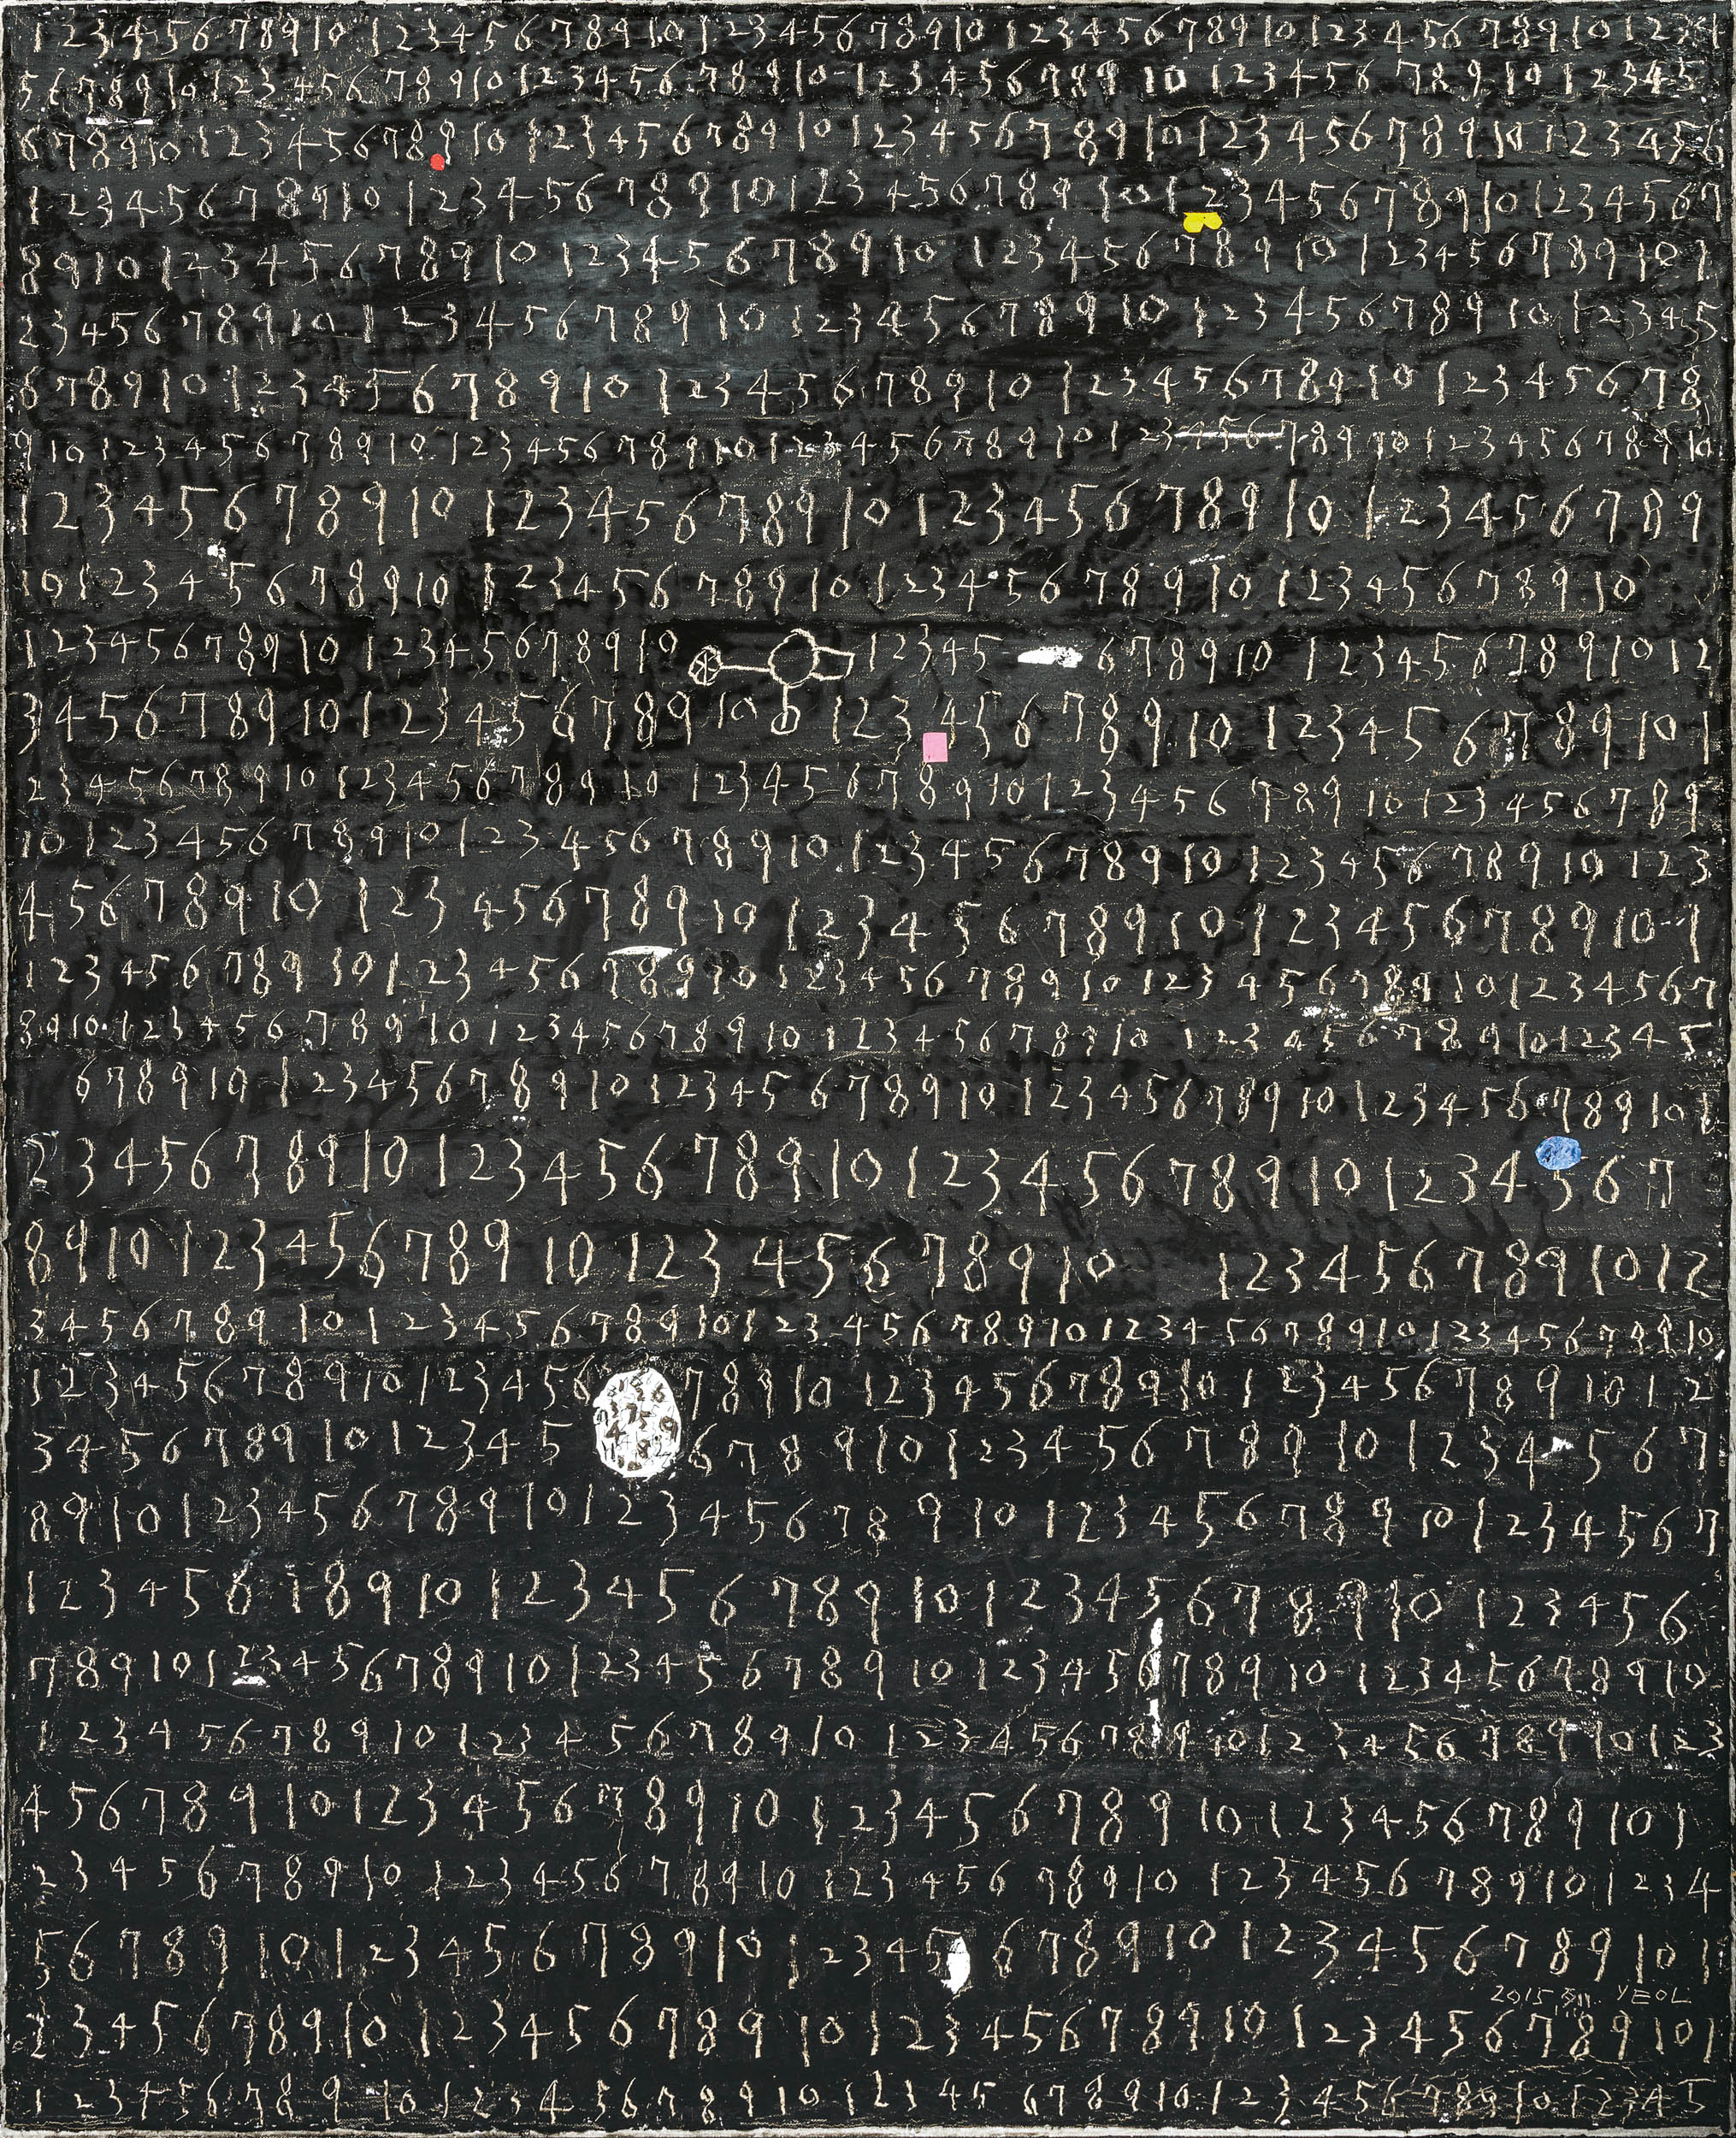 1 2 3 4 5 6 7 8 9 10 1 2 3 4 5 6 7 8 9 10 1 2 3 4 5 6 7 8 9 10 1 2 3 4 5 6 7 8 9 10 1 2 3 4 5 6 7 8 9 10 1 2 3 4
5 6 7 8 9 10 1 2 3 4 5 6 7 8 9 10 1 2 3 4 5 6 7 8 9 10 1 2 3 4 5 6 7 8 9 10 1 2 3 4 5 6 7 8 9 10 1 2 3 4 5
6 7 8 9 10 1 2 3 4 5 6 7 8 9 10 1 2 3 4 5 6 7 8 9 10 1 2 3 4 5 6 7 8 9 10 1 2 3 4 5 6 7 8 9 10 1 2 3 4 5 6
1 2 3 4 5 6 7 8 9 10 1 2 3 4 5 6 7 8 9 10 1 2 3 4 5 6 7 8 9 10 1 2 3 4 5 6 7 8 9 10 1 2 3 4 5 6 7
8 9 10 1 2 3 4 5 6 7 8 9 10 1 2 3 4 5 6 7 8 9 10 1 2 3 4 5 6 7 8 9 10 1 2 3 4 5 6 7 8 9 10 1
2 3 4 5 6 7 8 9 10 1 2 3 4 5 6 7 8 9 10 1 2 3 4 5 6 7 8 9 10 1 2 3 4 5 6 7 8 9 10 1 2 3 4 5
6 7 8 9 10 1 2 3 4 5 6 7 8 9 10 1 2 3 4 5 6 7 8 9 10 1 2 3 4 5 6 7 8 9 10 1 2 3 4 5 6 7 8
9 10 1 2 3 4 5 6 7 8 9 10 1 2 3 4 5 6 7 8 9 10 1 2 3 4 5 6 7 8 9 10 1 2 3 4 5 6 7 8 9 10 1 2 3 4 5 6 7 8 9 10
1 2 3 4 5 6 7 8 9 10 1 2 3 4 5 6 7 8 9 10 1 2 3 4 5 6 7 8 9 10 1 2 3 4 5 6 7 8 9
10 1 2 3 4 5 6 7 8 9 10 1 2 3 4 5 6 7 8 9 10 1 2 3 4 5 6 7 8 9 10 1 2 3 4 5 6 7 8 9 10
1 2 3 4 5 6 7 8 9 10 1 2 3 4 5 6 7 8 9 10 1 2 3 4 5 6 7 8 9 10 1 2 3 4 5 6 7 8 9 10 1 2
3 4 5 6 7 8 9 10 1 2 3 4 5 6 7 8 9 10 1 2 3 4 5 6 7 8 9 10 1 2 3 4 5 6 7 8 9 10 1
2 3 4 5 6 7 8 9 10 1 2 3 4 5 6 7 8 9 10 1 2 3 4 5 6 7 8 9 10 1 2 3 4 5 6 7 8 9 10 1 2 3 4 5 6 7 8 9
10 1 2 3 4 5 6 7 8 9 10 1 2 3 4 5 6 7 8 9 10 1 2 3 4 5 6 7 8 9 10 1 2 3 4 5 6 7 8 9 10 1 2 3
4 5 6 7 8 9 10 1 2 3 4 5 6 7 8 9 10 1 2 3 4 5 6 7 8 9 10 1 2 3 4 5 6 7 8 9 10 1
1 2 3 4 5 6 7 8 9 10 1 2 3 4 5 6 7 8 9 10 1 2 3 4 5 6 7 8 9 10 1 2 3 4 5 6 7 8 9 10 1 2 3 4 5 6 7
8 9 10 1 2 3 4 5 6 7 8 9 10 1 2 3 4 5 6 7 8 9 10 1 2 3 4 5 6 7 8 9 10 1 2 3 4 5 6 7 8 9 10 1 2 3 4 5
6 7 8 9 10 1 2 3 4 5 6 7 8 9 10 1 2 3 4 5 6 7 8 9 10 1 2 3 4 5 6 7 8 9 10 1 2 3 4 5 6 7 8 9 10 1
2 3 4 5 6 7 8 9 10 1 2 3 4 5 6 7 8 9 10 1 2 3 4 5 6 7 8 9 10 1 2 3 4 5 6 7
8 9 10 1 2 3 4 5 6 7 8 9 10 1 2 3 4 5 6 7 8 9 10 1 2 3 4 5 6 7 8 9 10 1 2
3 4 5 6 7 8 9 10 1 2 3 4 5 6 7 8 9 10 1 2 3 4 5 6 7 8 9 10 1 2 3 4 5 6 7 8 9 10 1 2 3 4 5 6 7 8 9 10
1 2 3 4 5 6 7 8 9 10 1 2 3 4 5 6 7 8 9 10 1 2 3 4 5 6 7 8 9 10 1 2 3 4 5 6 7 8 9 10 1 2
3 4 5 6 7 8 9 10 1 2 3 4 5 6 7 8 9 10 1 2 3 4 5 6 7 8 9 10 1 2 3 4 5 6 7
8 9 10 1 2 3 4 5 6 7 8 9 10 1 2 3 4 5 6 7 8 9 10 1 2 3 4 5 6 7 8 9 10 1 2 3 4 5 6 7
1 2 3 4 5 6 7 8 9 10 1 2 3 4 5 6 7 8 9 10 1 2 3 4 5 6 7 8 9 10 1 2 3 4 5 6
7 8 9 10 1 2 3 4 5 6 7 8 9 10 1 2 3 4 5 6 7 8 9 10 1 2 3 4 5 6 7 8 9 10 1 2 3 4 5 6 7 8 9 10
1 2 3 4 5 6 7 8 9 10 1 2 3 4 5 6 7 8 9 10 1 2 3 4 5 6 7 8 9 10 1 2 3 4 5 6 7 8 9 10 1 2 3
4 5 6 7 8 9 10 1 2 3 4 5 6 7 8 9 10 1 2 3 4 5 6 7 8 9 10 1 2 3 4 5 6 7 8 9 10 1
2 3 4 5 6 7 8 9 10 1 2 3 4 5 6 7 8 9 10 1 2 3 4 5 6 7 8 9 10 1 2 3 4 5 6 7 8 9 10 1 2 3 4
5 6 7 8 9 10 1 2 3 4 5 6 7 8 9 10 1 2 3 4 5 6 7 8 9 10 1 2 3 4 5 6 7 8 9 10 1
2015 YEOL
2 3 4 5 6 7 8 9 10 1 2 3 4 5 6 7 8 9 10 1 2 3 4 5 6 7 8 9 10 1 2 3 4 5 6 7 8 9 10 1
1 2 3 4 5 6 7 8 9 10 1 2 3 4 5 6 7 8 9 10 1 2 3 4 5 6 7 8 9 10 1 2 3 4 5 6 7 8 9 10 1 2 3 4 5